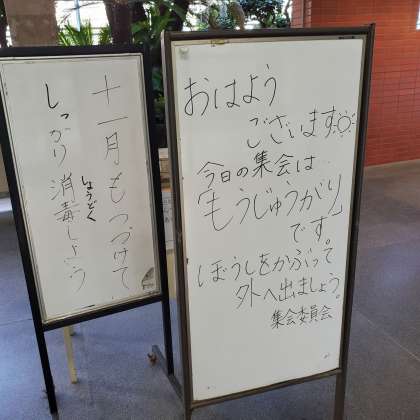 十一月もつづけて
しっかり消毒しよう
しょうどく
おはよう
ございます
今日の集会は
「もうじゅうがり」
です。
ぼうしをかぶって
外へ出ましょう。
集会委員会